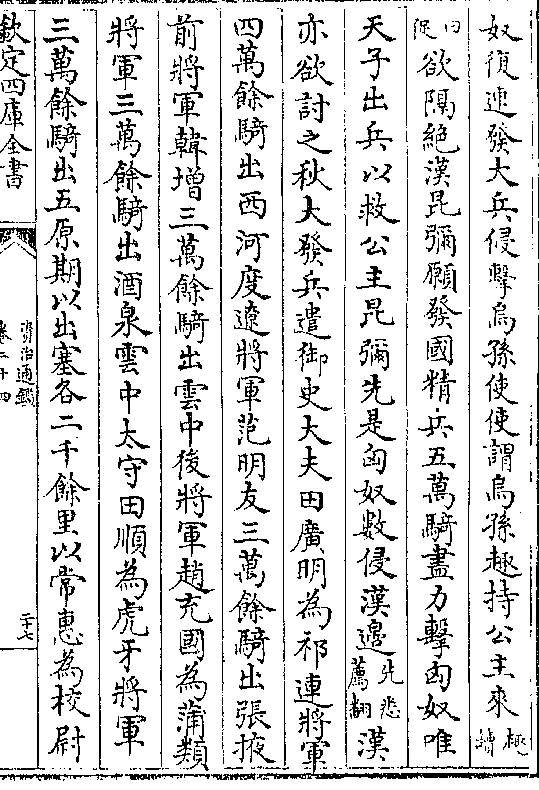 奴復連發大兵侵擊烏孫使使謂烏孫趣持公主來趣讀
曰促欲隔絶漢昆彌願發國精兵五萬騎盡力擊匈奴唯
天子出兵以救公主昆彌先是匈奴數侵漢邊先悉薦翻漢
亦欲討之秋大發兵遣御史大夫田廣明為祁連將軍
四萬餘騎出西河度遼將軍范明友三萬餘騎出張掖
前將軍韓增三萬餘騎出雲中後將軍趙充國為蒲類
將軍三萬餘騎出酒泉雲中太守田順為虎牙將軍
三萬餘騎出五原期以出塞各二千餘里以常惠為校尉
欽定四庫全書
資治通鑑
卷二十四
二十七